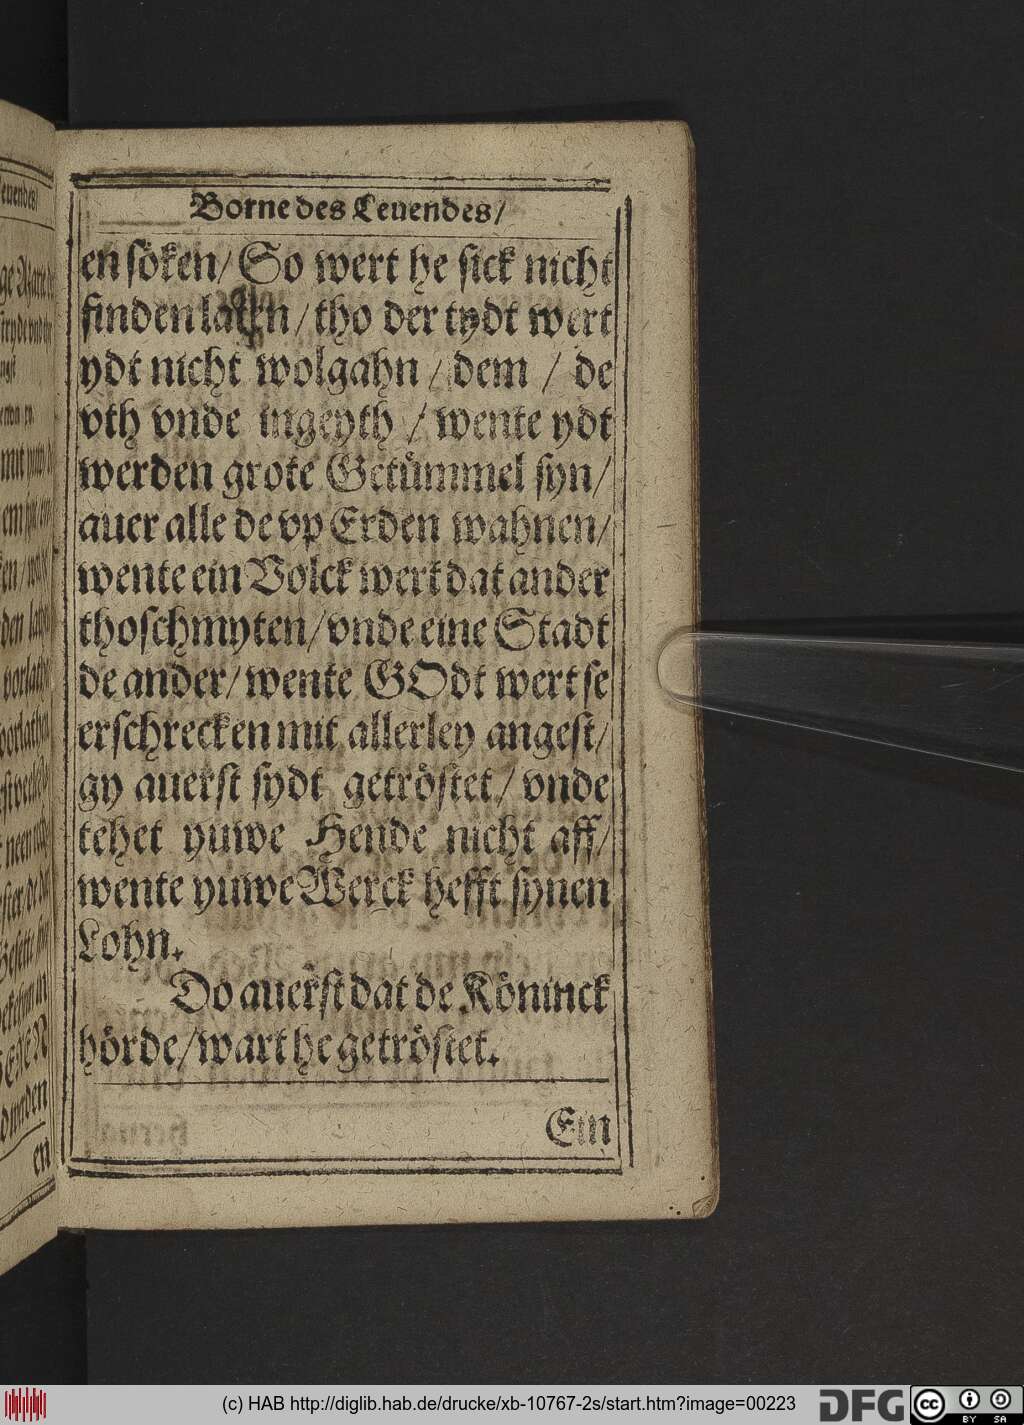 Borne des Leuendes/
en söken/ So wert he sick nicht
finden laten/ tho der tydt wert
ydt nicht wolgahn / dem / de
vth vnde ingeyth / wente ydt
werden grote Getümmel syn/
auer alle de vp Erden wahnen/
wente ein Volck wert dat ander
thoschmyten/ vnde eine Stadt
de ander/ wente GOdt wert se
erschrecken mit allerley angest/
gy auerst sydt getröstet/ vnde
tehet yuwe Hende nicht aff/
wente yuwe Werck hefft synen
Lohn.
Do auerst dat de Köninck
hörde/ wart he getröstet.
Ein
(c) HAB http://diglib.hab.de/drucke/xb-10767-2s/start.htm?image=00223
DFG
cc BY SA